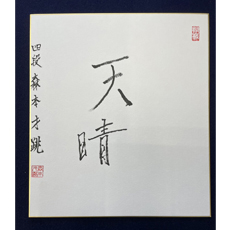 天晴
四段 森本才跳